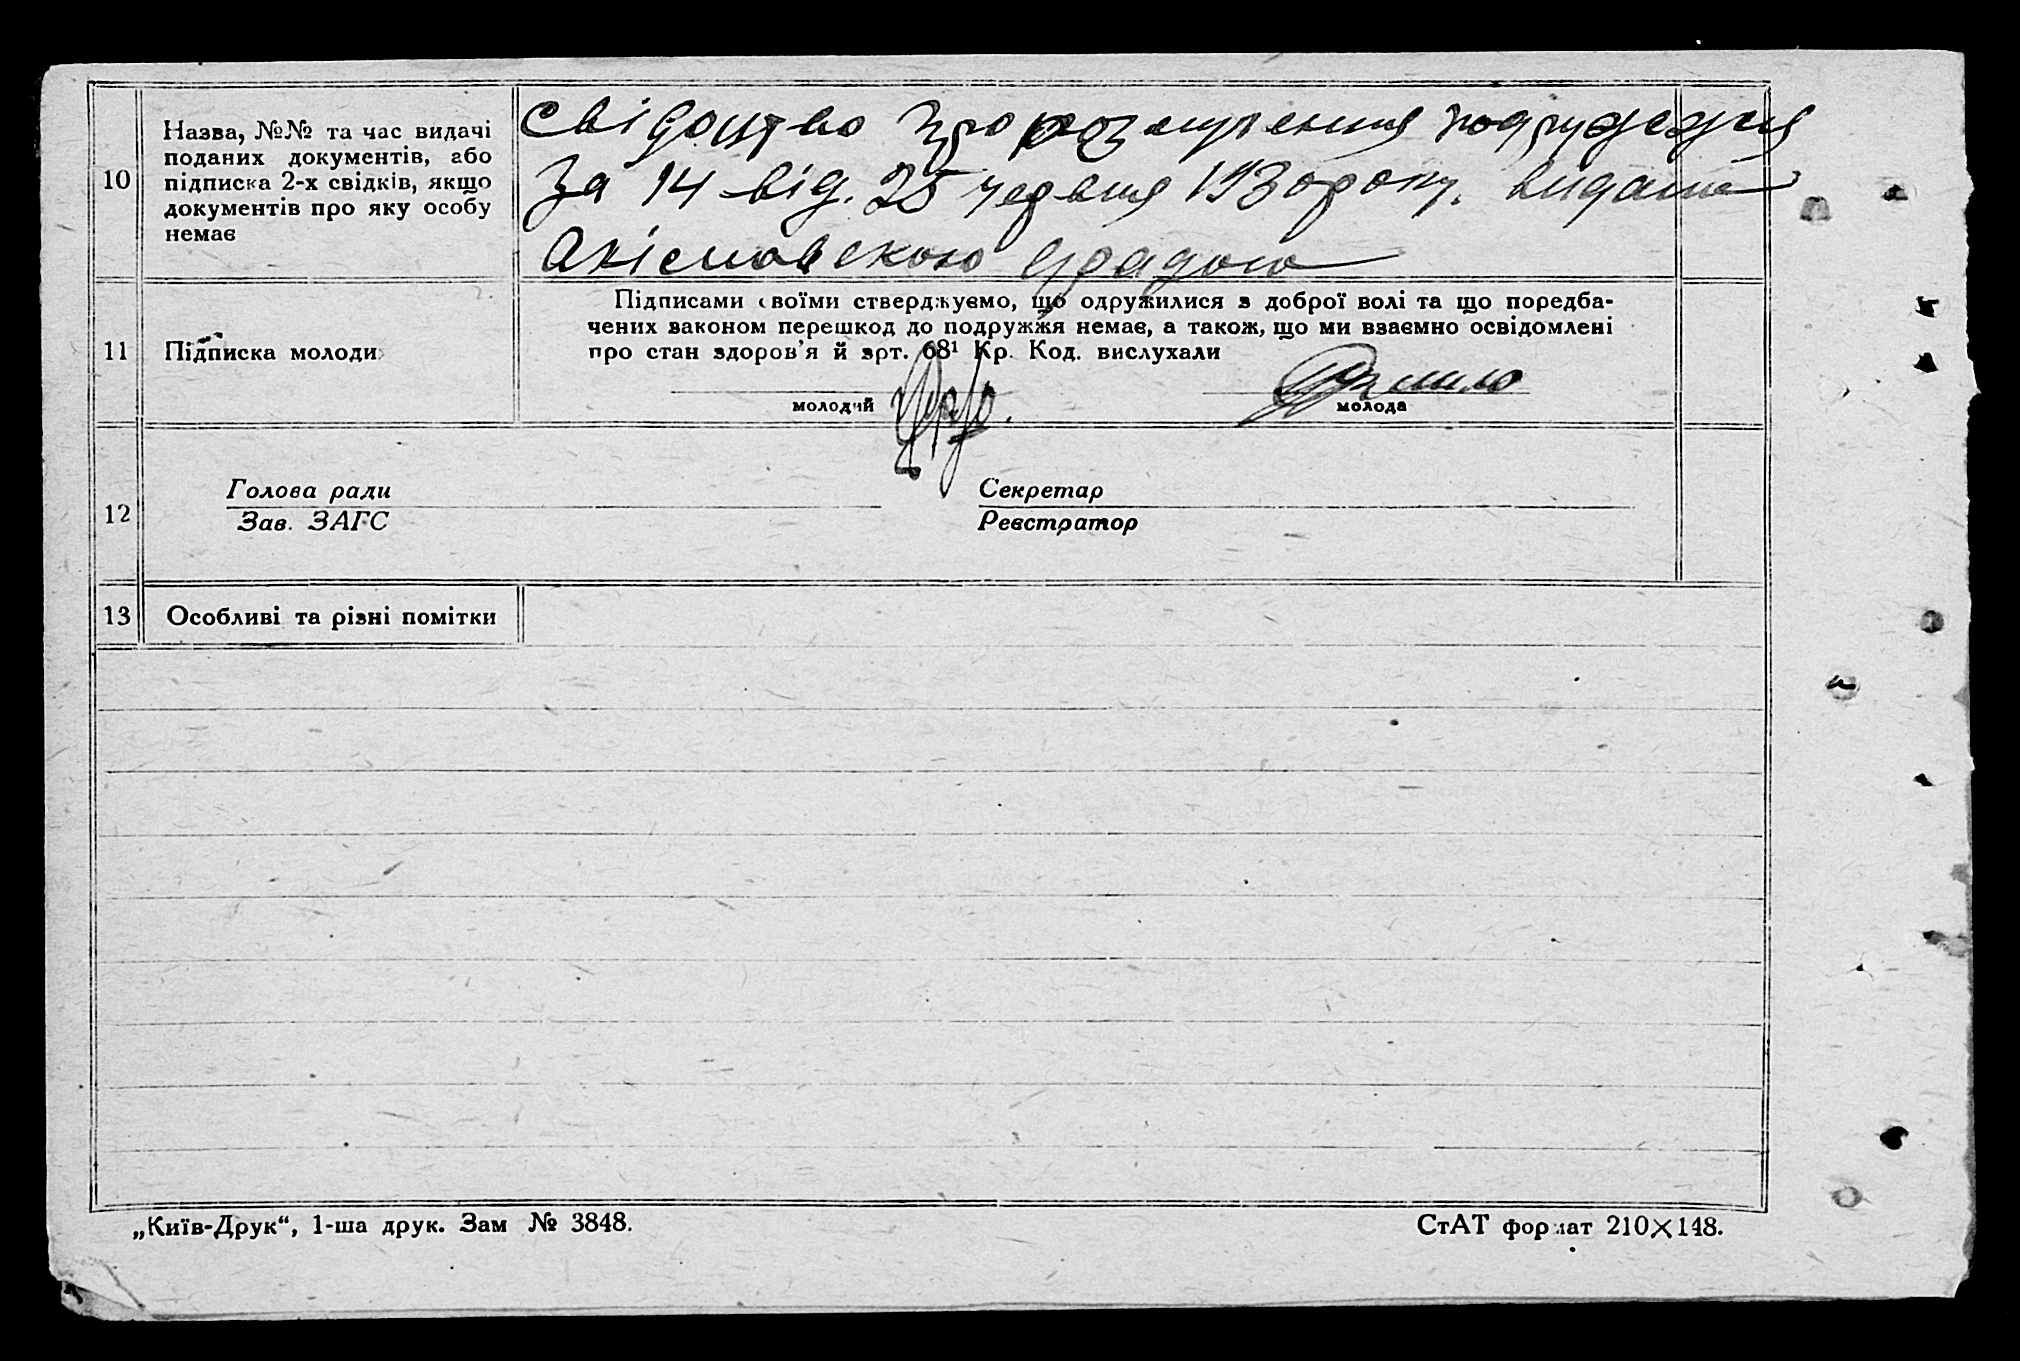 10
Назва, №№ та час видачі
поданих документів, або
підписка 2-х свідків, якщо
документів про яку особу
немає
Свідоцтво про подружжя
За 14 від. 25 червня 1930 року. видане
11
Підписка молоди
Підписами своїми стверджуємо, що одружилися з доброї волі та що поредба-
чених законом перешкод до подружжя немає, а також, що ми взаємно освідомлені
про стан здоров'я й арт. 68¹ Кр. Код. вислухали
молодий
молода
12
Голова ради
Зав. ЗАГС
Секретар
Реєстратор
13
Особливі та різні помітки
„Київ-Друк“, 1-ша друк. Зам № 3848.
СтАТ формат 210×148.